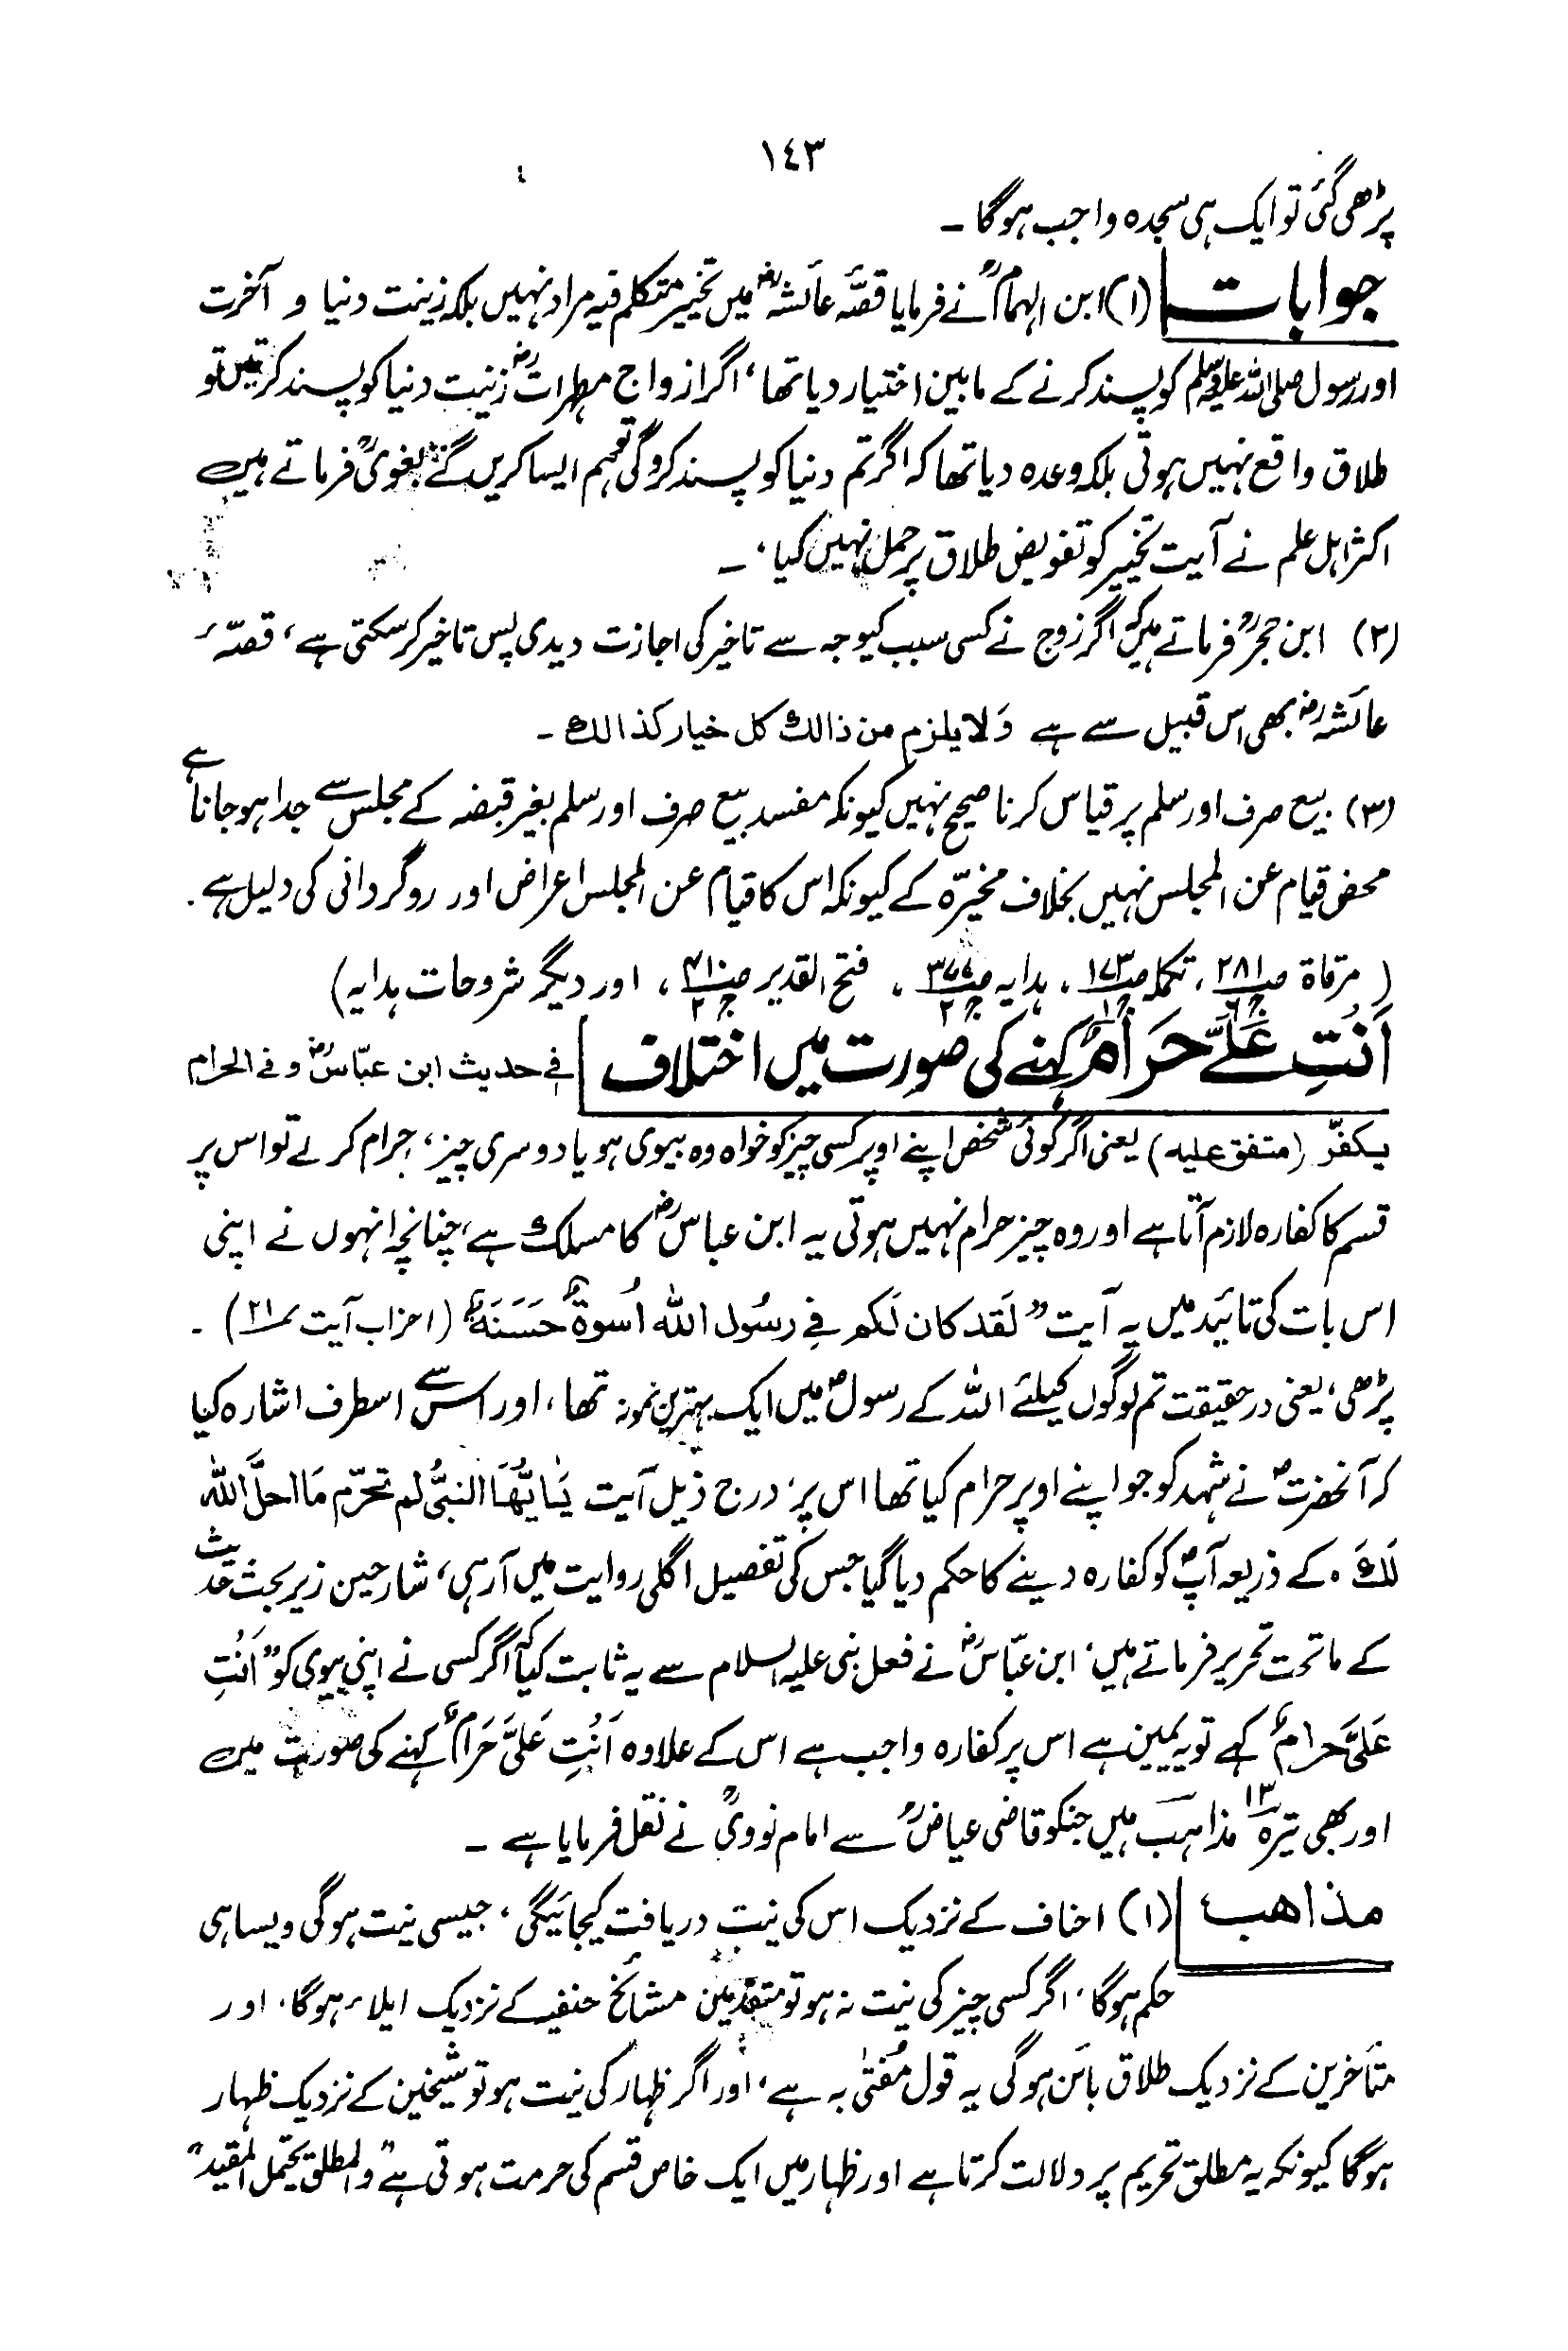 ١٤٣
پڑھی گئی تو ایک ہی سجدہ واجب ہوگا ۔
جوابات (۱) ابن الہمامؒ نے فرمایا قصّۂ عائشہؓ میں تخییر متکلم فیہ مراد نہیں بلکہ زینت دنیا و آخرت
اور رسول صلی اللہ علیہ وسلم کو پسند کرنے کے مابین اختیار دیا تھا ، اگر ازواج مطہراتؓ زینت دنیا کو پسند کرتیں تو
طلاق واقع نہیں ہوتی بلکہ وعدہ دیا تھا کہ اگر تم دنیا کو پسند کروگی تو ہم ایسا کریں گے بغویؒ فرماتے ہیں
اکثر اہل علم نے آیت تخییر کو تفویض طلاق پر حمل نہیں کیا ، ۔
(۲) ابن حجرؒ فرماتے ہیں کہ اگر زوج نے کسی سبب کیوجہ سے تاخیر کی اجازت دیدی پس تاخیر کر سکتی ہے ، قصّۂ
عائشہؓ بھی اس قبیل سے ہے وَلا یلزم من ذالك کل خیار کذالك ۔
(۳) بیع صرف اور سلم پر قیاس کرنا صحیح نہیں کیونکہ مفسد بیع صرف اور سلم بغیر قبضہ کے مجلس سے جدا ہو جانا ہے
محض قیام عن المجلس نہیں بخلاف مخیرّہ کے کیونکہ اس کا قیام عن المجلس اعراض اور روگردانی کی دلیل ہے .
( مرقاة صـ ۲۸۱ ج ۶ ، تکملہ صـ ۱۷۳ ج ۱ ، ہدایہ صـ ۳۷۷ ج ۲ ، فتح القدیر صـ ۴۱۰ ج ۲ ، اور دیگر شروحات ہدایہ )
اَنْتِ عَلَیَّ حَرَامٌ کہنے کی صورت میں اختلاف فی حدیث ابن عبّاسؓ و فی الحرام
یکفّر (متفق علیہ) یعنی اگر کوئی شخص اپنے اوپر کسی چیز کو خواہ وہ بیوی ہو یا دوسری چیز ، حرام کر لے تو اس پر
قسم کا کفارہ لازم آتا ہے اور وہ چیز حرام نہیں ہوتی یہ ابن عباسؓ کا مسلک ہے ، چنانچہ انہوں نے اپنی
اس بات کی تائید میں یہ آیت ” لَقد کان لَکم فِی رسُول اللہ اُسوةٌ حَسَنَةٌ (احزاب آیت ۲۱) ۔
پڑھی ، یعنی درحقیقت تم لوگوں کیلئے اللہ کے رسولؐ میں ایک بہترین نمونہ تھا ، اور اس سے اسطرف اشارہ کیا
کہ آنحضرتؐ نے شہد کو جو اپنے اوپر حرام کیا تھا اس پر ، درج ذیل آیت یٰایُّھَا النبیُّ لم تحرّم مَا احلَّ اللہ
لَكَ . کے ذریعہ آپؐ کو کفارہ دینے کا حکم دیا گیا جس کی تفصیل اگلی روایت میں آرہی ، شارحین زیر بحث حدیث
کے ماتحت تحریر فرماتے ہیں ، ابن عبّاسؓ نے فعل نبی علیہ السلام سے یہ ثابت کیا کہ اگر کسی نے اپنی بیوی کو ” اَنْتِ
عَلَیَّ حرامٌ کہے تو یہ یمین ہے اس پر کفارہ واجب ہے اس کے علاوہ اَنْتِ عَلَیَّ حَرَامٌ کہنے کی صورت میں
اور بھی تیرہ ۱۳ مذاہب ہیں جنکو قاضی عیاضؒ سے امام نوویؒ نے نقل فرمایا ہے ۔
مذاھب (۱) احناف کے نزدیک اس کی نیت دریافت کیجائیگی ، جیسی نیت ہوگی ویسا ہی
حکم ہوگا ، اگر کسی چیز کی نیت نہ ہو تو متقدمین مشائخ حنفیہ کے نزدیک ایلاء ہوگا ، اور
متأخرین کے نزدیک طلاق بائن ہوگی یہ قول مُفتٰی بہ ہے ، اور اگر ظہار کی نیت ہو تو شیخین کے نزدیک ظہار
ہوگا کیونکہ یہ مطلق تحریم پر دلالت کرتا ہے اور ظہار میں ایک خاص قسم کی حرمت ہوتی ہے ” والمطلق یحتمل المقید “